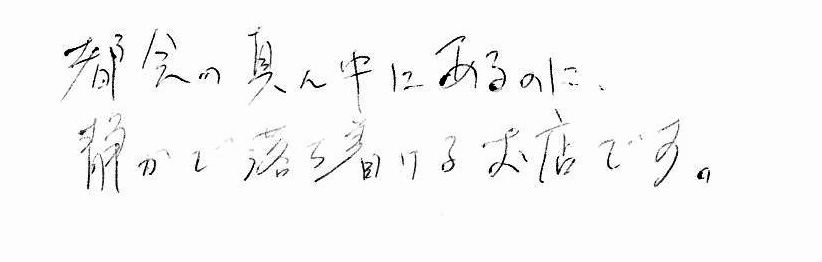 都会の真ん中にあるのに、
静かで落ち着けるお店です。